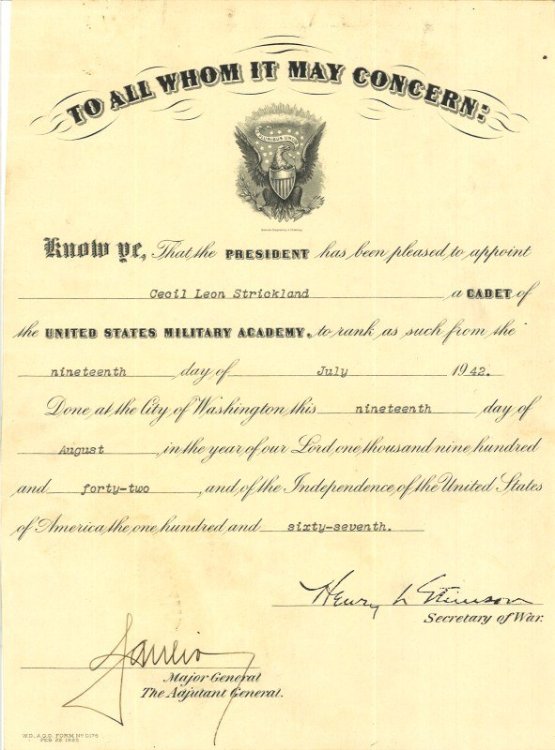 TO ALL WHOM IT MAY CONCERN:
E PLURIBUS UNUM
Know ye, That the PRESIDENT has been pleased to appoint
Cecil Leon Strickland a CADET of
the UNITED STATES MILITARY ACADEMY, to rank as such from the
nineteenth day of July 1942.
Done at the City of Washington this nineteenth day of
August, in the year of our Lord one thousand nine hundred
and forty-two, and of the Independence of the United States
of America the one hundred and sixty-seventh.
Henry L Stimson
Secretary of War.
Major General
The Adjutant General.
W.D., A.G.O. FORM No 0176